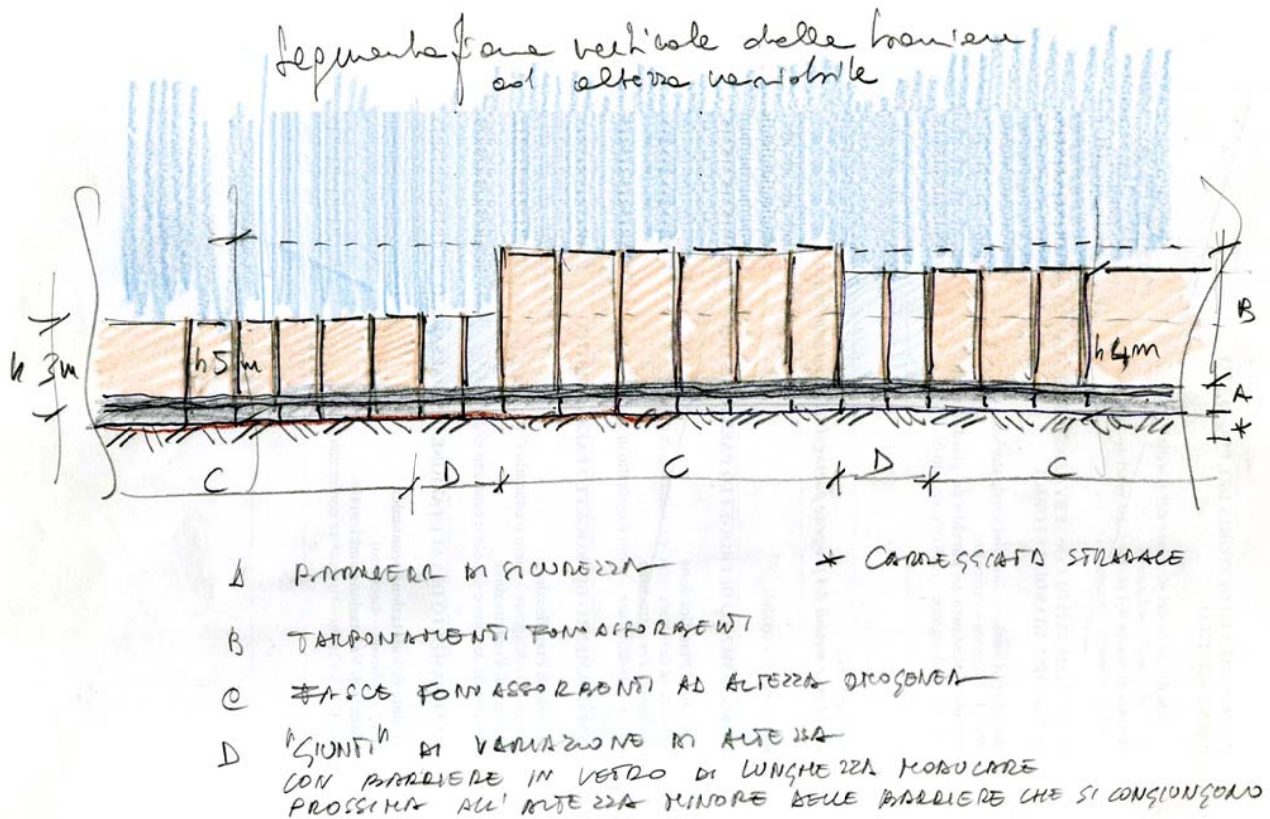 Segmentazione verticale delle barriere
ad altezza variabile
h 3m
h 5 m
h 4m
B
A
*
C
D
C
D
C
A BARRIERA DI SICUREZZA
* CARREGGIATA STRADALE
B TAMPONAMENTI FONOASSORBENTI
C FASCE FONOASSORBENTI AD ALTEZZA OMOGENEA
D "GIUNTI" DI VARIAZIONE DI ALTEZZA
CON BARRIERE IN VETRO DI LUNGHEZZA MODULARE
PROSSIMA ALL' ALTEZZA MINORE DELLE BARRIERE CHE SI CONGIUNGONO